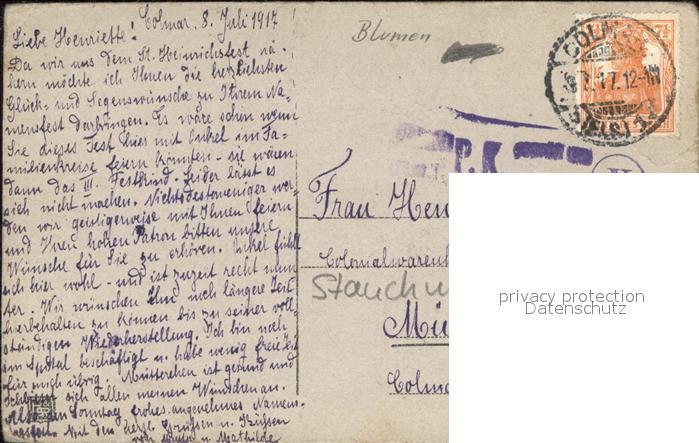 Colmar, 8. Juli 1917
Liebe Henriette!
Da wir uns dem St. Heinrichsfest nä-
hern möchte ich Ihnen die herzlichsten
Glück- und Segenswünsche zu Ihrem Na-
mensfest darbringen. Es wäre schön wenn
Sie dieses Fest hier mit Onkel im Fa-
milienkreise feiern könnten - sie wären
dann das III. Festkind. Leider lässt es
sich nicht machen. Nichtsdestoweniger wer-
den wir geistigerweise mit Ihnen feiern
und Ihren hohen Patron bitten unsere
Wünsche für Sie zu erhören. Onkel fühlt
sich hier wohl - und ist zuzeit recht mun
ter. Wir wünschen Ihn noch längere Zeit
hierbehalten zu können bis zu seiner voll-
ständigen Wiederherstellung. Ich bin noch
am Spital beschäftigt u. habe wenig freie Zeit
für mich übrig. Mütterchen ist gesund und
schliesst sich allen meinen Wünschen an.
Also am Sonntag frohes angenehmes Namens-
Mit den herzl. Grüssen u. Küssen
u. Mathilde
Blumen
COLMAR
7. 17. 12-1N
(ELS) 1
7½
P.K
Frau Hen
Colonialwarenh
Stauch
Mü
Colma
privacy protection
Datenschutz